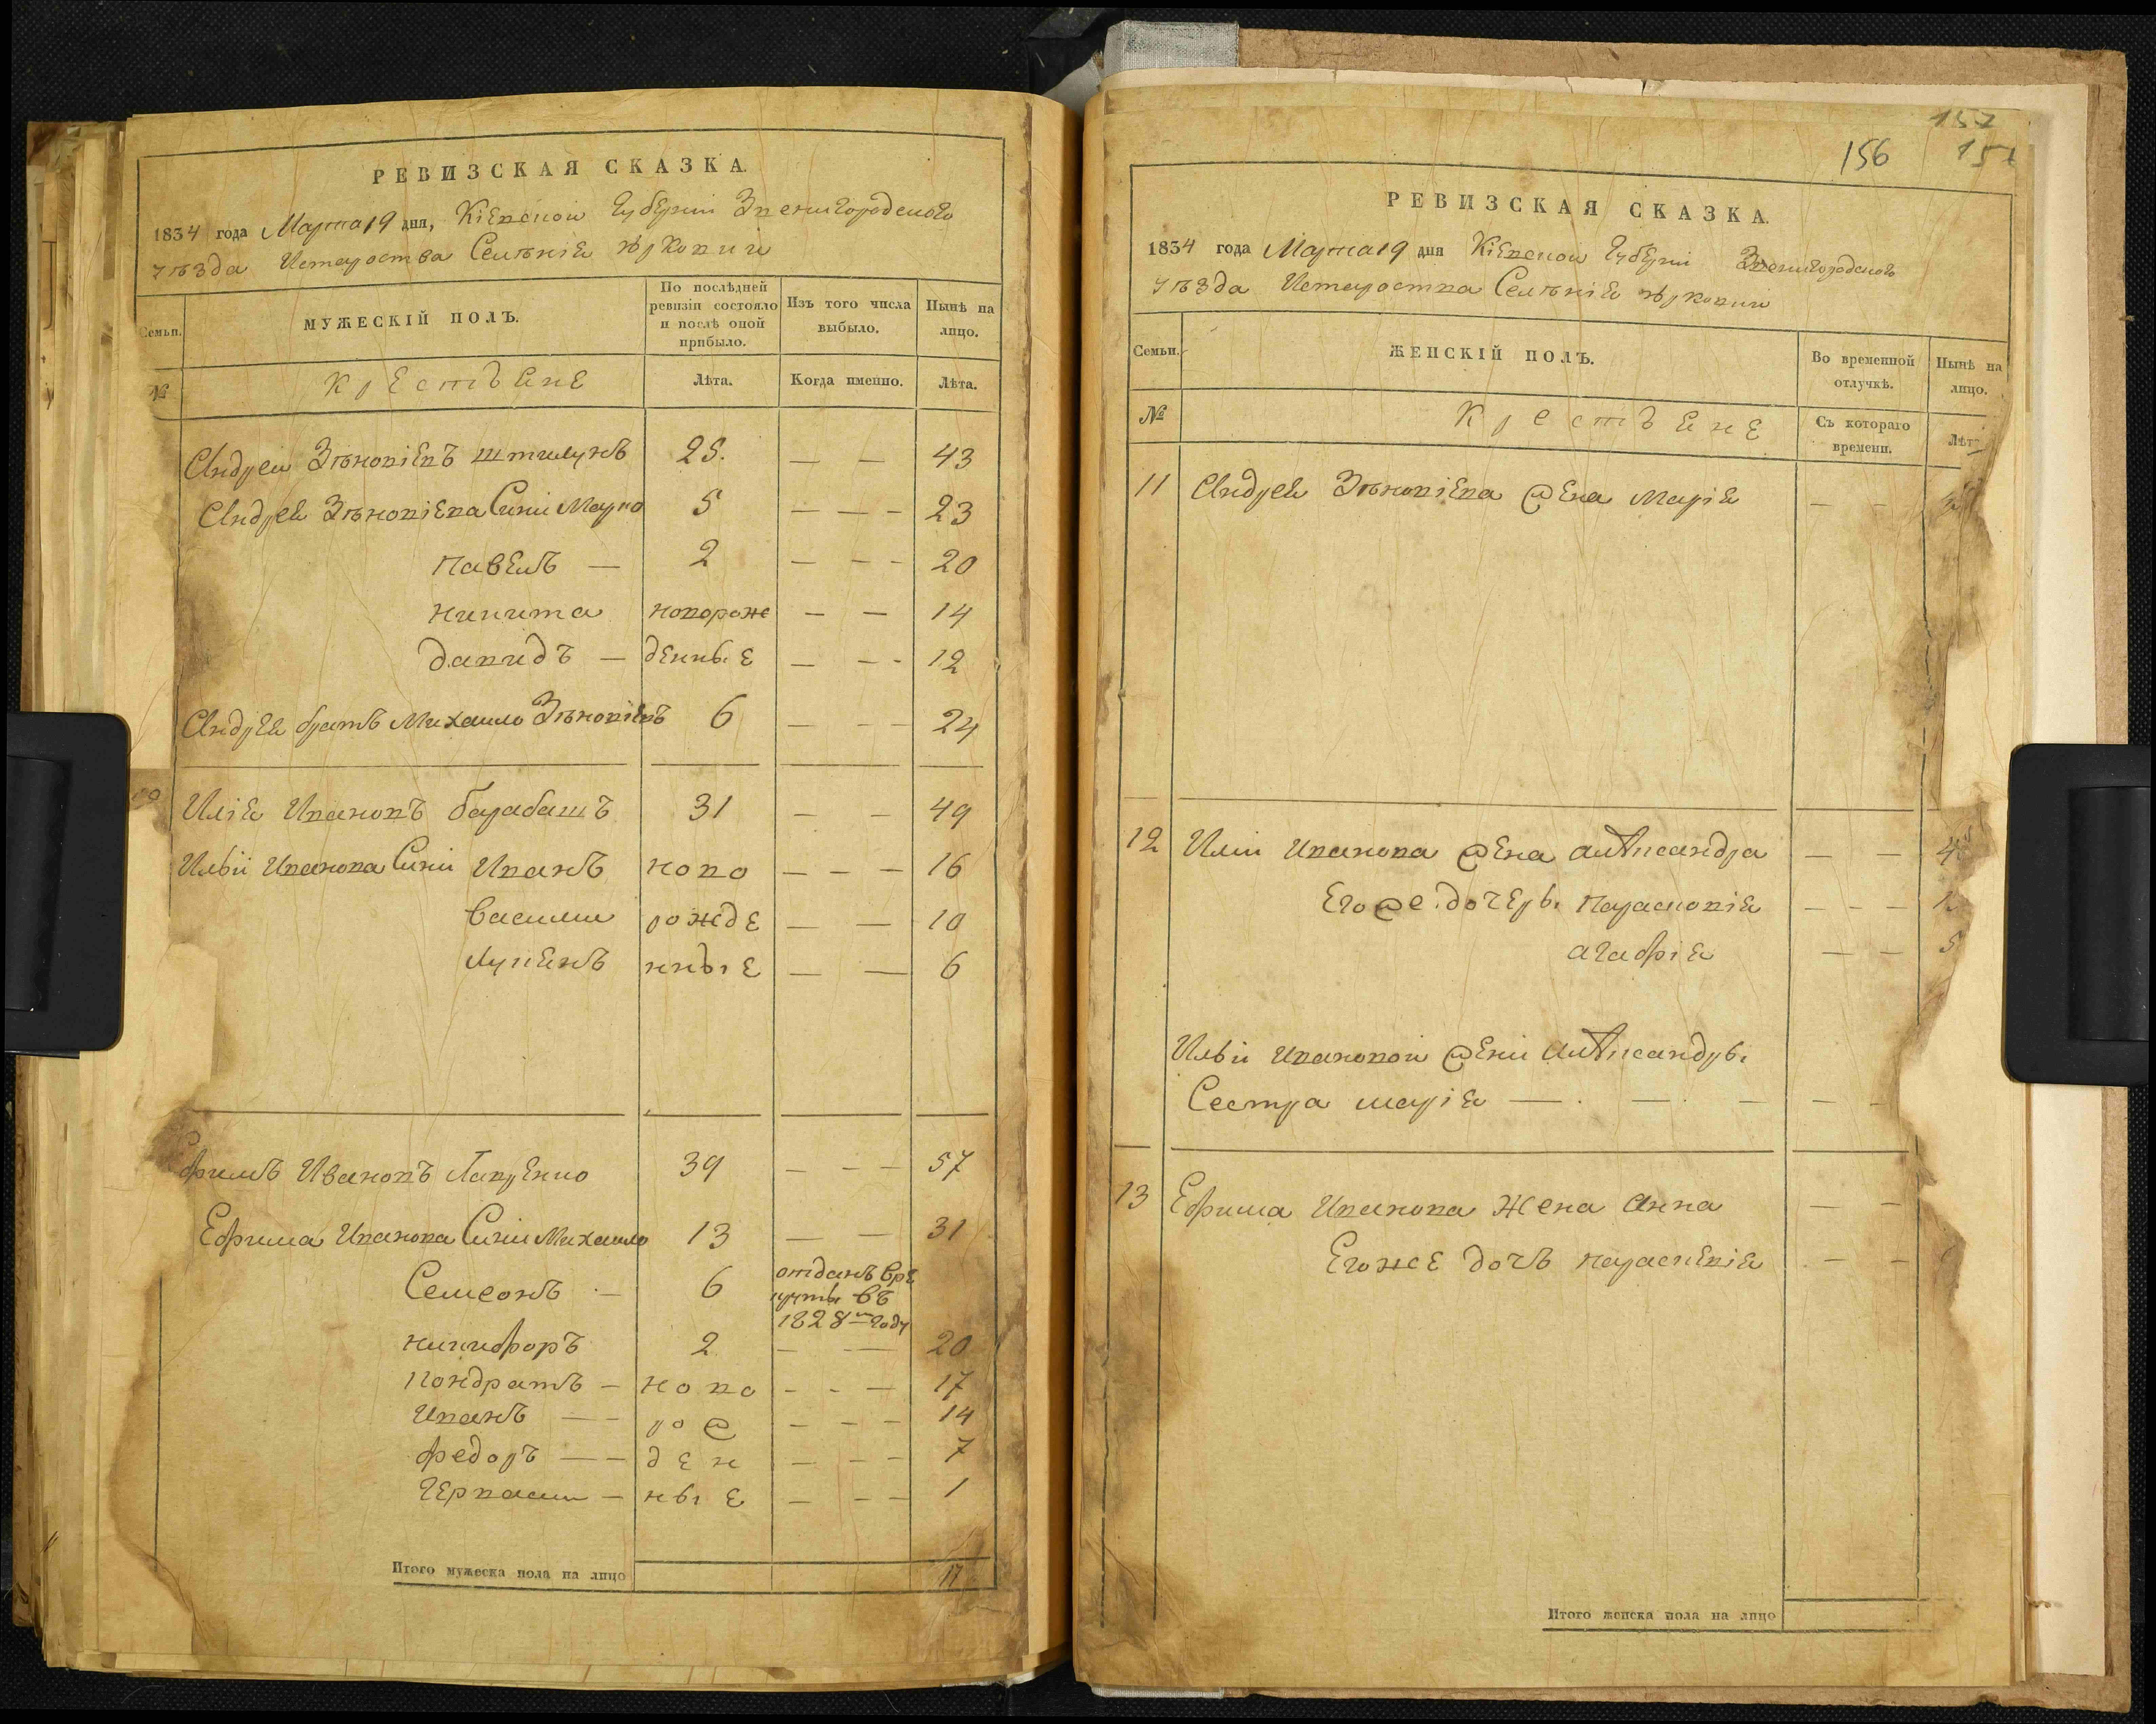 РЕВИЗСКАЯ СКАЗКА.
1834 года Марта 19 дня, Кіевской Губерніи Звенигородского
уѣзда Истароства Селѣніе
Семьи.
МУЖЕСКІЙ ПОЛЪ.
По послѣдней ревизіи состояло и послѣ оной прибыло.
Изъ того числа выбыло.
Нынѣ на лицо.
№
Крестъяне
Лѣта.
Когда именно.
Лѣта.
Андреи Зѣновіевъ 25. — — 43
Андрея Зѣновіева Сини Марко 5 — — — 23
Павелъ — 2 — — — 20
Никита новорожс — — 14
давидъ — денные — — - 12
Андрея братъ Михаило Зѣновіевъ 6 — — — 24
Илія Ивановъ барабашъ 31 — — 49
Ильи Иванова Сини Иванъ ново — — — 16
василии рожде — — 10
Лукянъ нные — — 6
фимъ Ивановъ Лавренко 39 — — — 57
Ефима Иванова Сини Михаило 13 — — 31
Семеонъ — 6 отданъ врѣ
круты въ
1828м году
никифоръ 2 — — — 20
кондратъ — ново - - — 17
Иванъ — — рож — — — 14
федоръ — — ден — — — 7
Герваси — ные — — — 1
Итого мужеска пола на лицо 17
157
156 151
РЕВИЗСКАЯ СКАЗКА.
1834 года Марта 19 дня Кіевской Губерніи Звенигородского
уѣзда Истароства Селѣніе
Семьи.
ЖЕНСКІЙ ПОЛЪ.
Во временной отлучкѣ.
Нынѣ на лицо.
№
Крестъяне
Съ котораго времени.
Лѣт
11 Андрея Зѣновіева жена Марія — —
12 Иліи Иванова жена александра — — 4
Егоже дочеры Парасковія — — — 1
агафія — — 5
Ильи Ивановой жени александры
Сестра марія — . — . — — —
13 Ефима Иванова Жена Анна — —
Егоже дочъ параскевія — —
Итого женска пола на лицо